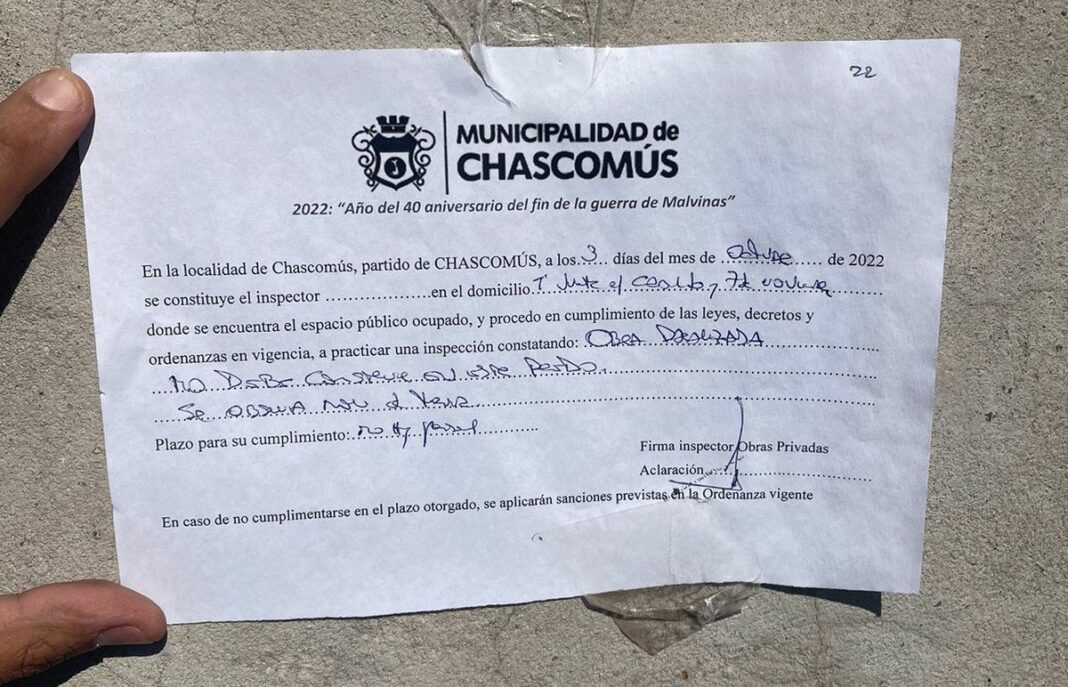 22
MUNICIPALIDAD de
CHASCOMÚS
2022: “Año del 40 aniversario del fin de la guerra de Malvinas”
En la localidad de Chascomús, partido de CHASCOMÚS, a los 3 días del mes de octubre de 2022
se constituye el inspector ....................en el domicilio
donde se encuentra el espacio público ocupado, y procedo en cumplimiento de las leyes, decretos y
ordenanzas en vigencia, a practicar una inspección constatando: OBRA
NO DEBE en este
Se observa
Plazo para su cumplimiento: no hay
Firma inspector Obras Privadas
Aclaración
En caso de no cumplimentarse en el plazo otorgado, se aplicarán sanciones previstas en la Ordenanza vigente